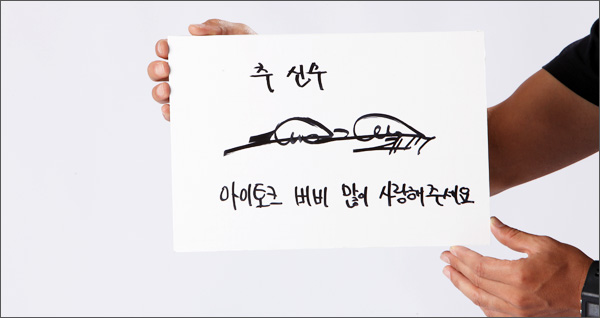 추 신수
아이토크 버비 많이 사랑해주세요